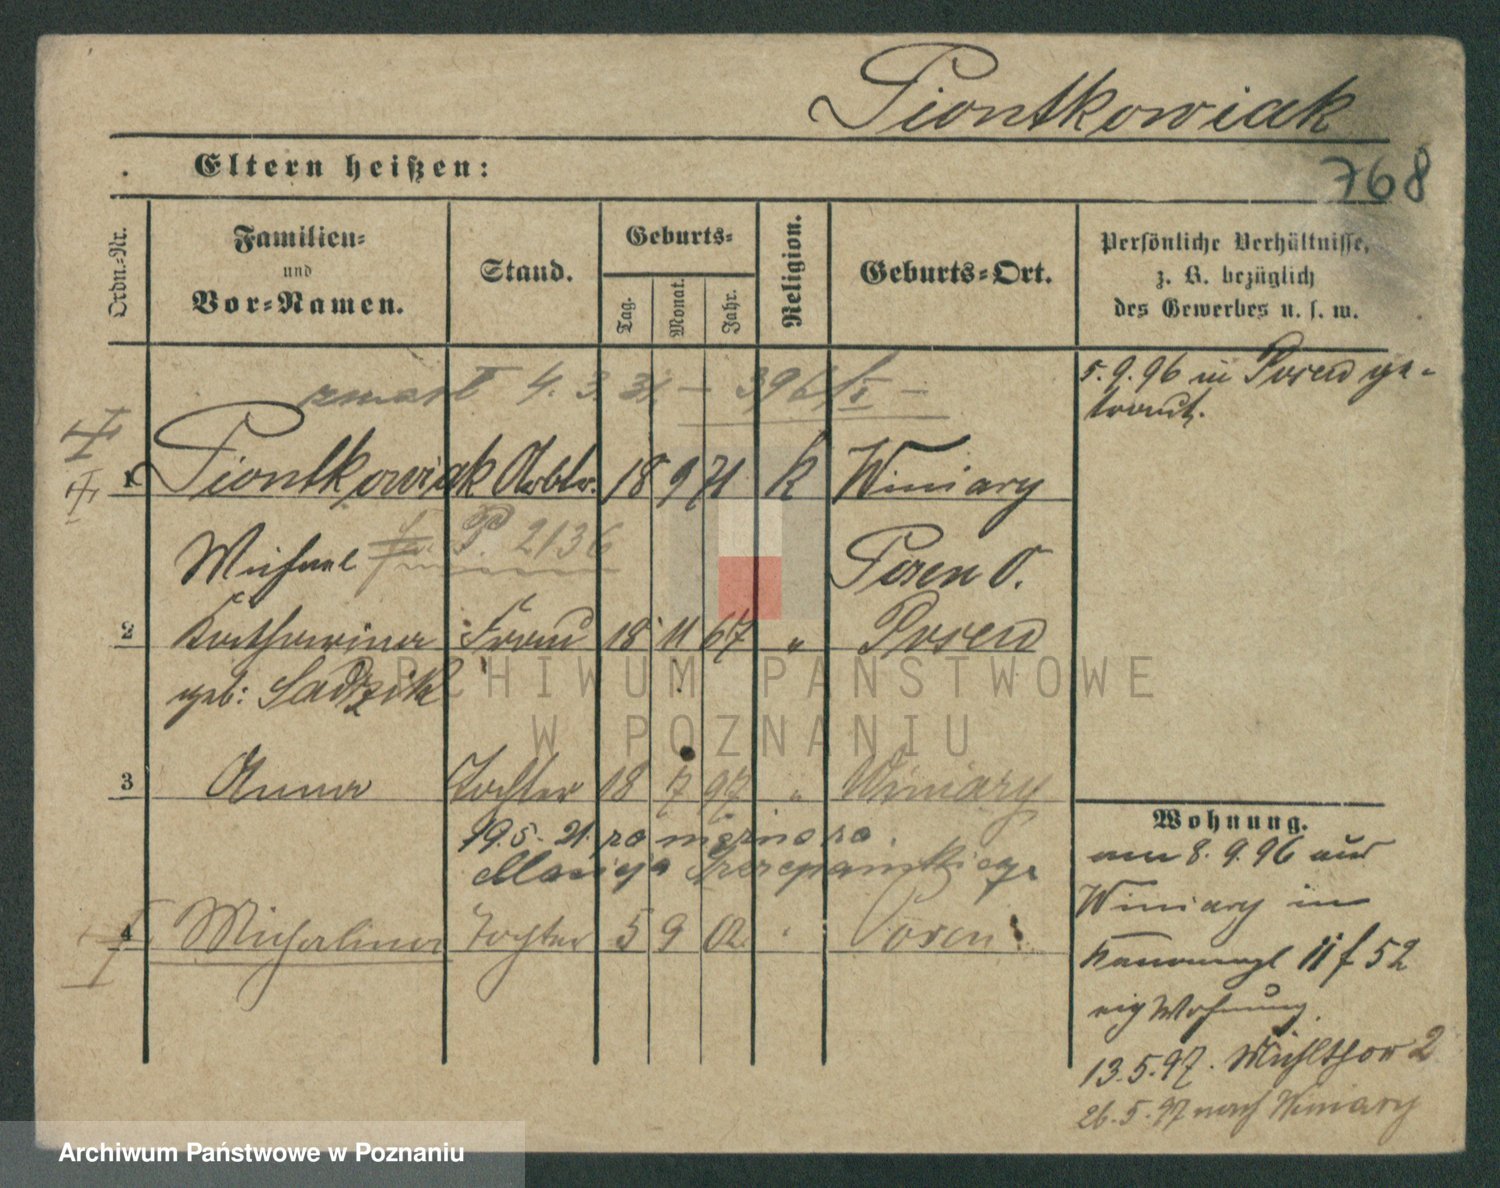 Piontkowiak
768
Eltern heißen:
Ordn.-Nr.
Familien-
und
Vor-Namen.
Stand.
Geburts-
Tag.
Monat.
Jahr.
Religion.
Geburts-Ort.
Persönliche Verhältnisse,
z. B. bezüglich
des Gewerbes u. s. w.
zmarł 4. 3. 31 – 396/I –
5. 9. 96 in Posen ge-
traut.
1 Piontkowiak Arbtr. 18 9 71 k Winiary
Michael P. 2136 Posen O.
2 Katharina Frau 18 11 67 " Posen
geb: Sadzik
3 Anna Tochter 18 7 97 " Winiary
19.5. 21. za mężna za
Macieja Szczepańskiego
4 Michalina Tochter 5 9 02 " Posen
Wohnung.
am 8. 9. 96 aus
Winiary in
11 f 52
eig Wohnung
13. 5. 97. Mühlthor 2
26. 5. 97 nach Winiary
ARCHIWUM PAŃSTWOWE
W POZNANIU
Archiwum Państwowe w Poznaniu